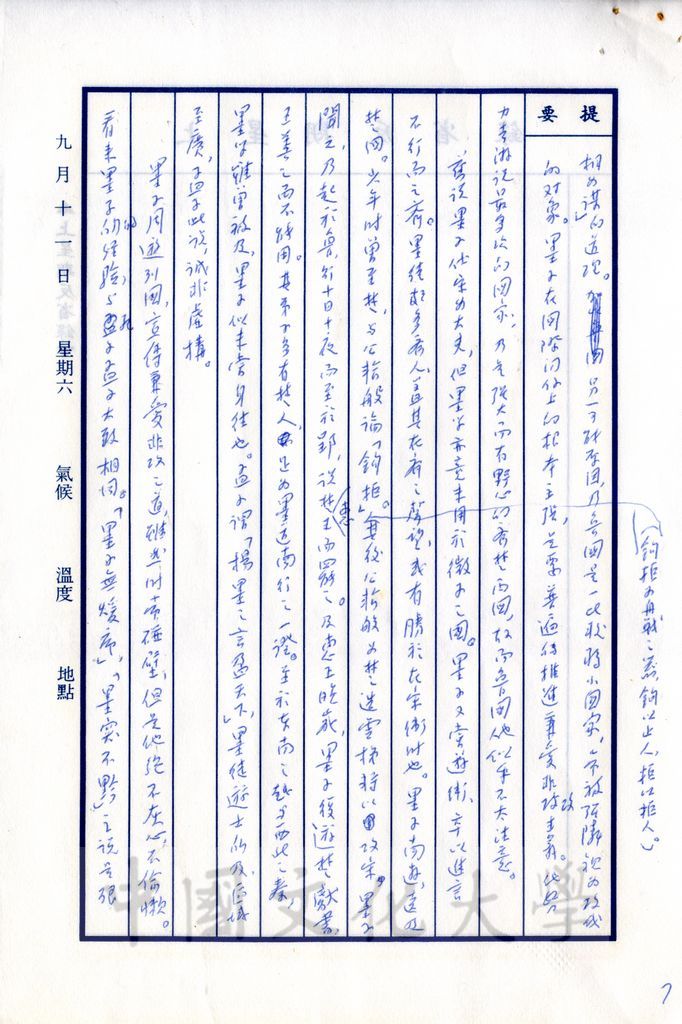 提要
相安謀的道理。另一可能原因,乃魯國是一比較弱小國家,常被強隣視為攻伐
的对象。墨子在国際関係上的根本主張,是要普遍的推進兼愛非攻主義。比較
力来游说最多次的国家,乃是强大而有野心的齊楚兩国,故而魯国他似乎不大注意。
舊说墨子仕宋为大夫,但墨学亦竟未用於微子之國。墨子又嘗遊衛,卒以進言
不行而之齊。墨徒頗多齊人,其在齊之聲望,或有勝於在宋衛时也。墨子南遊,遠及
楚国。少年时曾至楚,与公輸般論「鉤拒」。其後公輸般为楚造雲梯将以攻宋,墨子
(鉤拒为舟戰之器,鉤以止人,拒以拒人。)
聞之,乃起於魯,行十日十夜而至於郢,说楚王而罷之。及惠王晚歲,墨子復遊楚獻書,
王善之而不能用。其弟子多有楚人,足为墨道南行之一證。至於东南之越与西北之秦,
墨学雖曾被及,墨子似未嘗身往也。孟子謂「楊墨之言盈天下」,墨徒遊士所及,區域
至廣,孟子此说,诚非虚構。
墨子周遊列國,宣传兼愛非攻之道,雖然时常碰壁,但是他絕不灰心,不偷懒。
看来墨子的经驗,与孔子孟子大致相同。「墨子無煖席」,「墨突不黔」之说是很
九月十一日 星期六 氣候 溫度 地點
中國文化大學
7